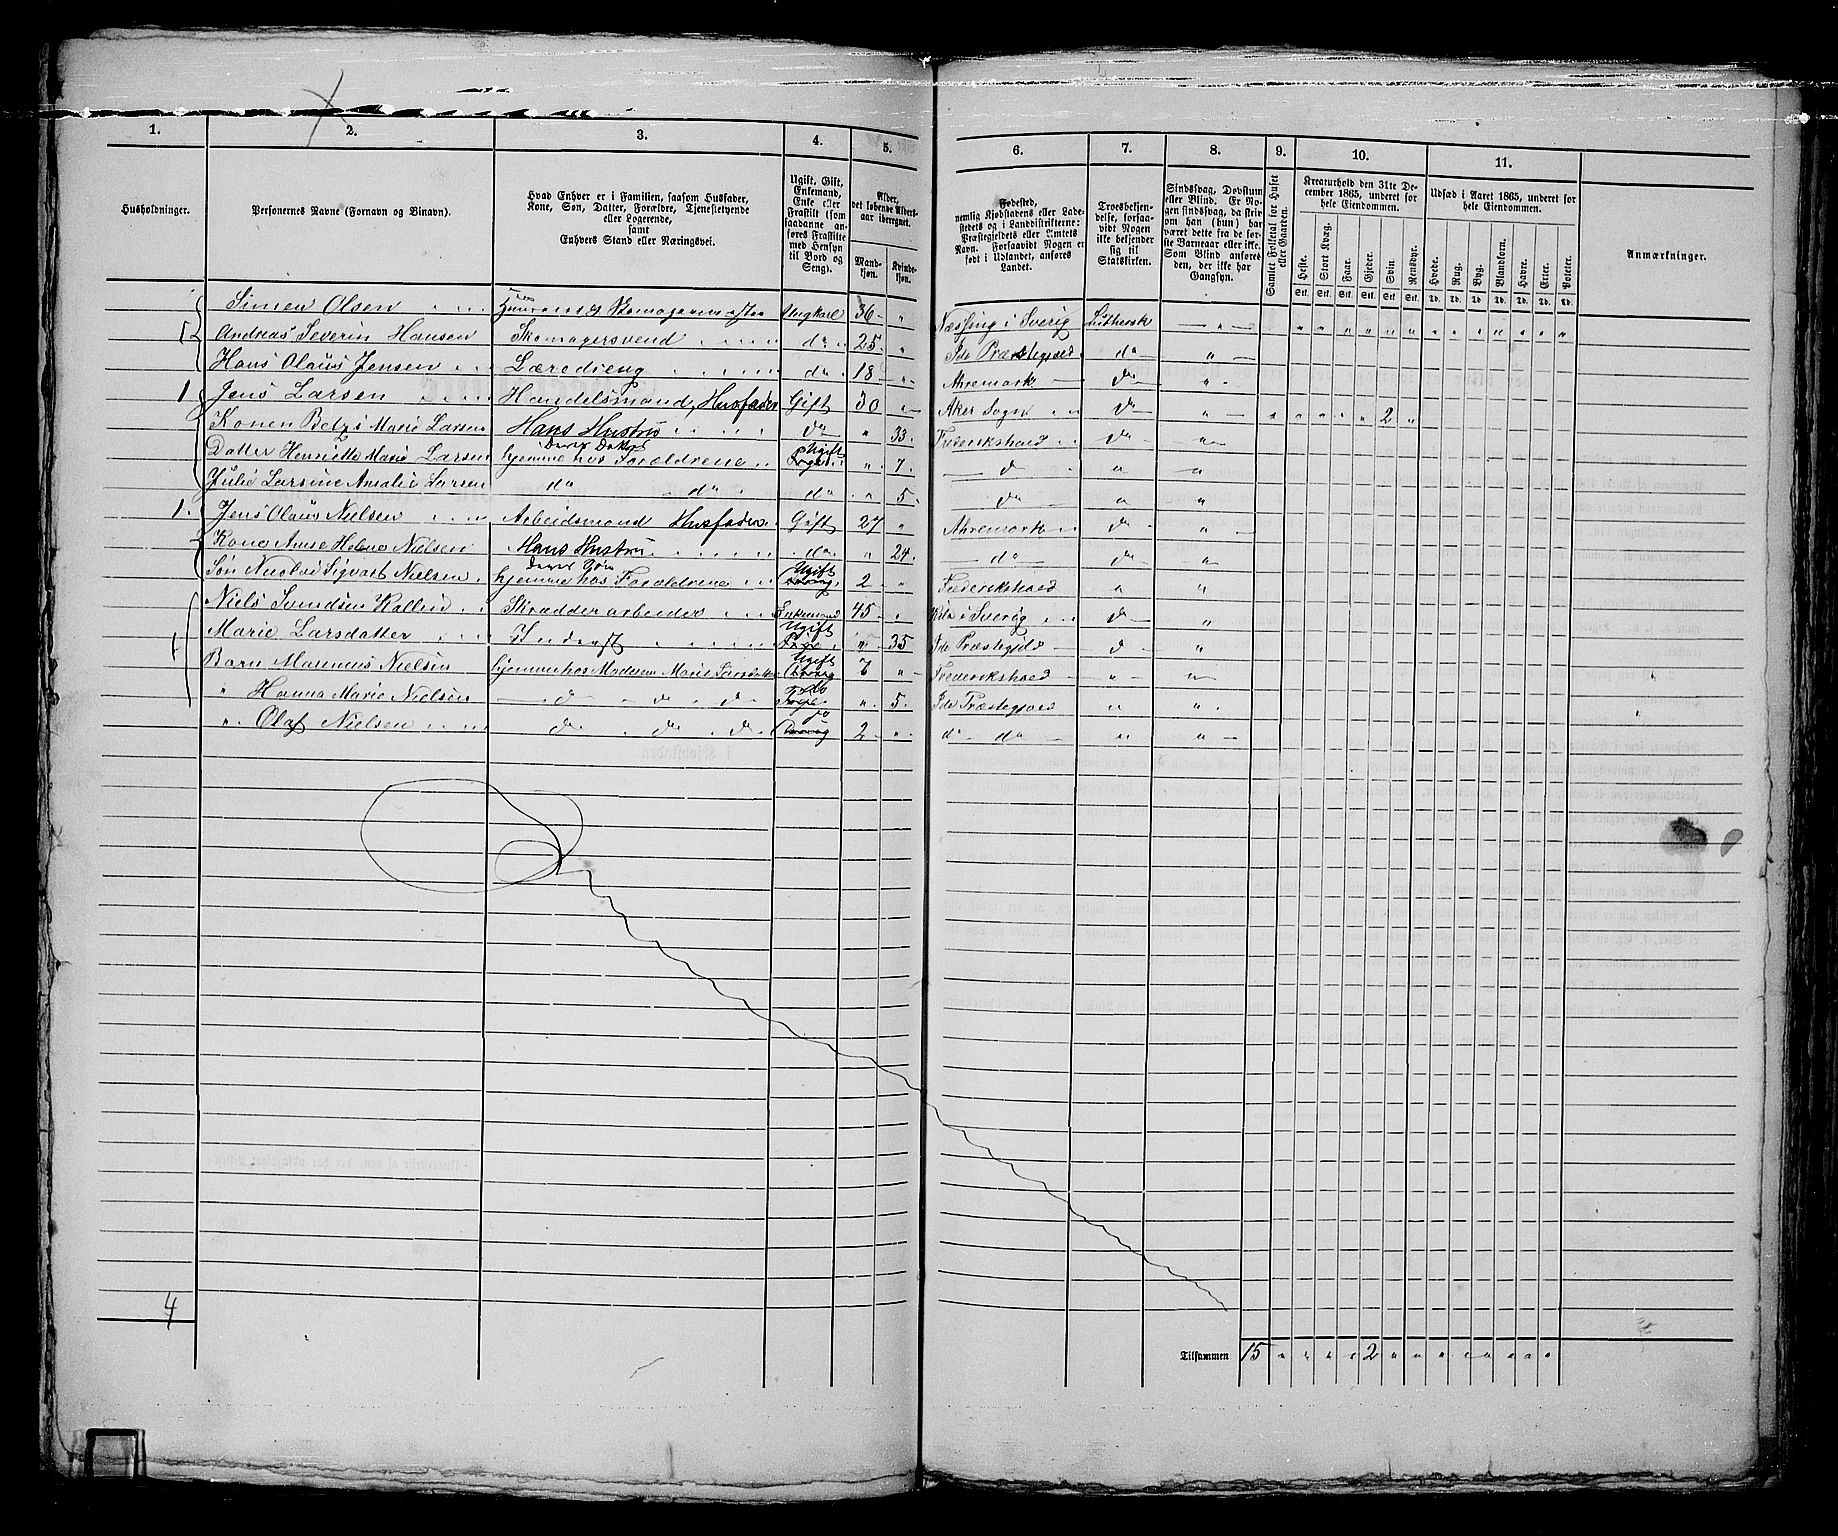 1. 2. 3. 4. 5. 6. 7. 8. 9. 10. 11.
Husholdninger.
Personernes Navne (Fornavn og Binavn).
Hvad Enhver er i Familien, saasom Husfader, Kone, Søn, Datter, Forældre, Tjenestetyende eller Logerende, samt Enhvers Stand eller Næringsvei.
Ugift, Gift, Enkemand, Enke eller Fraskilt (som saadanne anføres Fraskilte med Hensyn til Bord og Seng).
Alder, det løbende Aldersaar iberegnet.
Mandkjøn. Kvindekjøn.
Fødested, nemlig Kjøbstadens eller Ladestedets og i Landdistrikterne: Præstegjeldets eller Amtets Navn. Forsaavidt Nogen er født i Udlandet, anføres Landet.
Troesbekjendelse, forsaavidt Nogen ikke bekjender sig til Statskirken.
Sindssvag, Døvstum eller Blind. Er Nogen sindssvag, da skriv om han (hun) har været dette fra de første Barneaar eller ikke. Som Blind anføres den, der ikke har Gangsyn.
Samlet Folketal for Huset eller Gaarden.
Kreaturhold den 31te December 1865, underet for hele Eiendommen.
Heste. Stort Kvæg. Faar. Gjeder. Svin. Rensdyr.
Stk. Stk. Stk. Stk. Stk. Stk.
Udsæd i Aaret 1865, underet for hele Eiendommen.
Hvede. Rug. Byg. Blandkorn. Havre. Erter. Poteter.
Td. Td. Td. Td. Td. Td. Td.
Anmærkninger.
Simen Olsen Skomagermester Ungkarl 36 " i Sverig Luthersk
1 Andreas Severin Hansen Skomagersvend do 25 " Ide Præstegjeld do "
Hans Olaus Jensen Læredreng do 18 " Ahremark do "
1 Jens Larsen Handelsmand, Husfader Gift 30 " Aker Sogn do " 2
Konen Betzi Marie Larsen Hans Hustru do " 33 Frederikshald do "
Datter Henriette Marie Larsen Deres Datter hjemme hos Forældrene Ugift " 7 do " "
Julie Larsine Amalie Larsen do do do " 5 do " "
1 Jens Olaus Nielsen Arbeidsmand Husfader Gift 27 " Ahremark do "
Kone Anne Helene Nielsen Hans Hustru do " 24 do do "
Søn Nicolai Sigvart Nielsen Deres Søn hjemme hos Forældrene Ugift 2 " Frederikshald " "
Niels Svendsen Skrædderarbeider Enkemand 45 " i Sverig do "
1 Marie Larsdatter Inderst Ugift " 35 Ide Præstegjeld do "
Barn Marenius Nielsen hjemme hos Moderen Marie Larsdatter Ugift 7 " Frederikshald " "
" Hanna Marie Nielsen do do do do " 5 Ide Præstegjeld " "
" Olaf Nielsen do do do do 2 " do do " "
4
Tilsammen 15 " " " " 2 " " " " " " " "